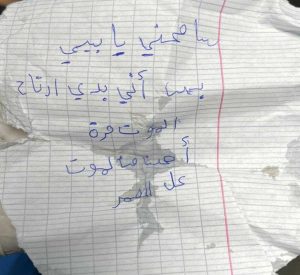 سامحني يا بيي
بس أني بدي ارتاح
الموت مرة
أهون من الموت
عل العمر